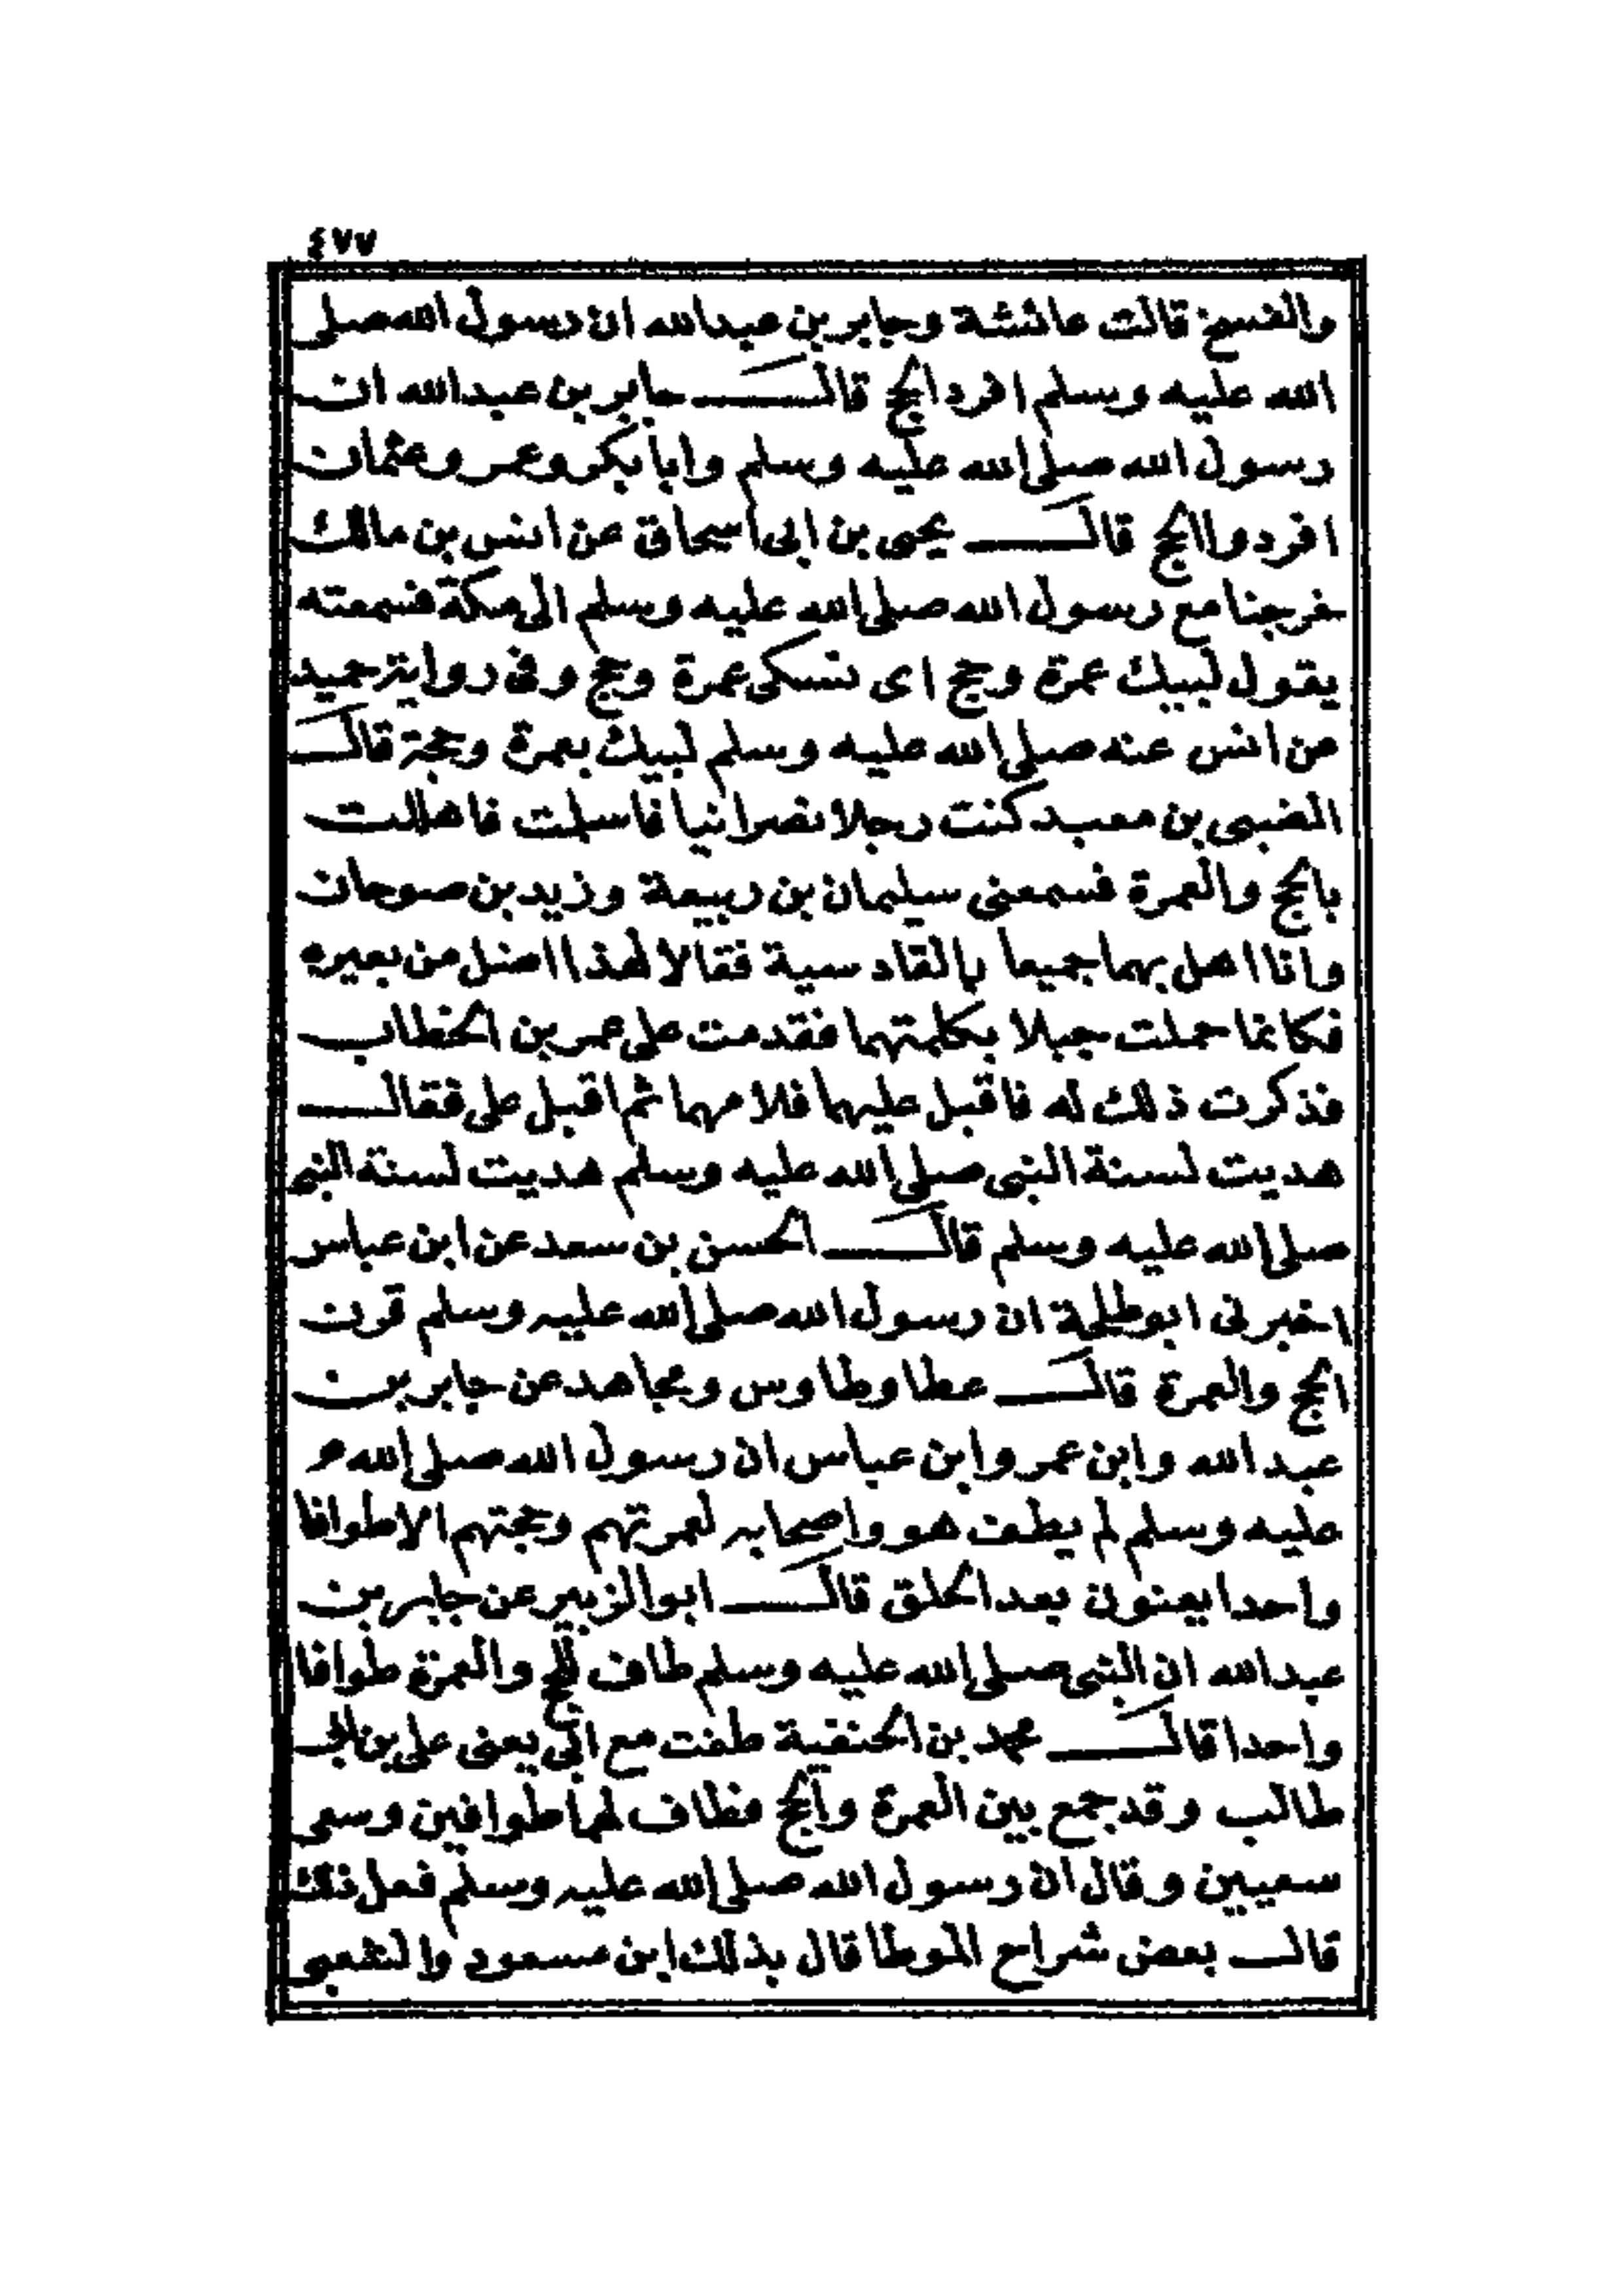 ٤٧٧
والفسخ قالت عائشة وجابر بن عبدالله ان رسول الله صلى
الله عليه وسلم افرد الحج قال جابر بن عبدالله ان
رسول الله صلى الله عليه وسلم وابا بكر وعمر وعثمان
افردوا الحج قال يحيى بن ابى اسحاق عن انس بن مالك
خرجنا مع رسول الله صلى الله عليه وسلم الى مكة فسمعته
يقول لبيك عمرة وحج اى نسكى عمرة وحج وفى رواية حميد
عن انس عنه صلى الله عليه وسلم لبيك بعمرة وحجة قال
الضبى بن معبد كنت رجلا نصرانيا فاسلمت فاهللت
بالحج والعمرة فسمعنى سليمان بن ربيعة وزيد بن صوحان
وانا اهل بهما جميعا بالقادسية فقالا لهذا اضل من بعيره
فكانما حملت جبلا بكلمتهما فقدمت على عمر بن الخطاب
فذكرت ذلك له فاقبل عليهما فلامهما ثم اقبل على فقال
هديت لسنة النبى صلى الله عليه وسلم هديت لسنة النبى
صلى الله عليه وسلم قال الحسن بن سعد عن ابن عباس
اخبرنى ابو طلحة ان رسول الله صلى الله عليه وسلم قرن
الحج والعمرة قال عطا وطاوس ومجاهد عن جابر بن
عبدالله وابن عمر وابن عباس ان رسول الله صلى الله
عليه وسلم لم يطف هو واصحابه لعمرتهم وحجتهم الاطوافا
واحدا يعنون بعد الحلق قال ابوالزبير عن جابر بن
عبدالله ان النبى صلى الله عليه وسلم طاف للحج والعمرة طوافا
واحدا قال محمد بن الحنفية طفت مع ابى يعنى على بن ابى
طالب وقد جمع بين العمرة والحج فطاف لهما طوافين وسعى
سعيين وقال ان رسول الله صلى الله عليه وسلم فعل ذلك
قال بعض شراح الموطا قال بذلك ابن مسعود والشعبى